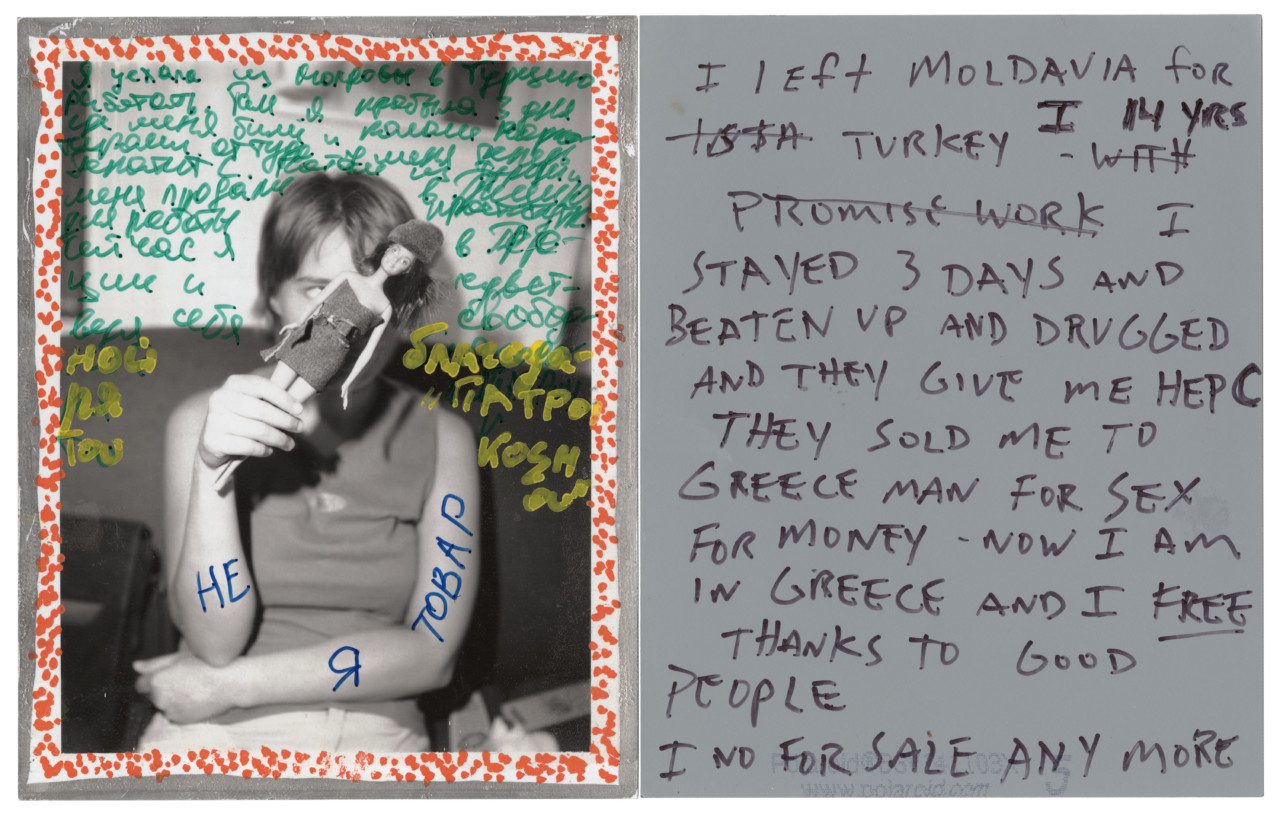 Я уехала из Молдовы в Турцию
работать. Там я пробыла 3 дня
где меня били и кололи нарко-
тиками оттуда и
С меня
меня продали в Грецию
для работы
Сейчас я в Гре-
ции и чувст-
вую себя свобод-
ной благода-
ря "ПАТРО
НЕ
Я
ТОВАР
I LEFT MOLDAVIA FOR
I 14 YRS
TURKEY - WITH
PROMISE WORK I
STAYED 3 DAYS AND
BEATEN UP AND DRUGGED
AND THEY GIVE ME HEP C
THEY SOLD ME TO
GREECE MAN FOR SEX
FOR MONEY - NOW I AM
IN GREECE AND I FREE
THANKS TO GOOD
PEOPLE
I NO FOR SALE ANY MORE
www.polaroid.com